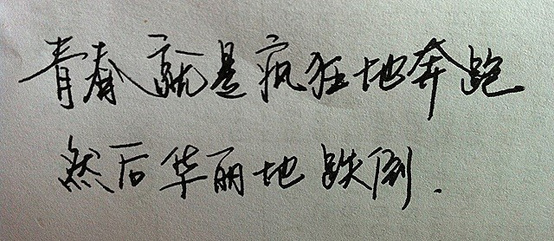 青春就是疯狂地奔跑
然后华丽地跌倒.